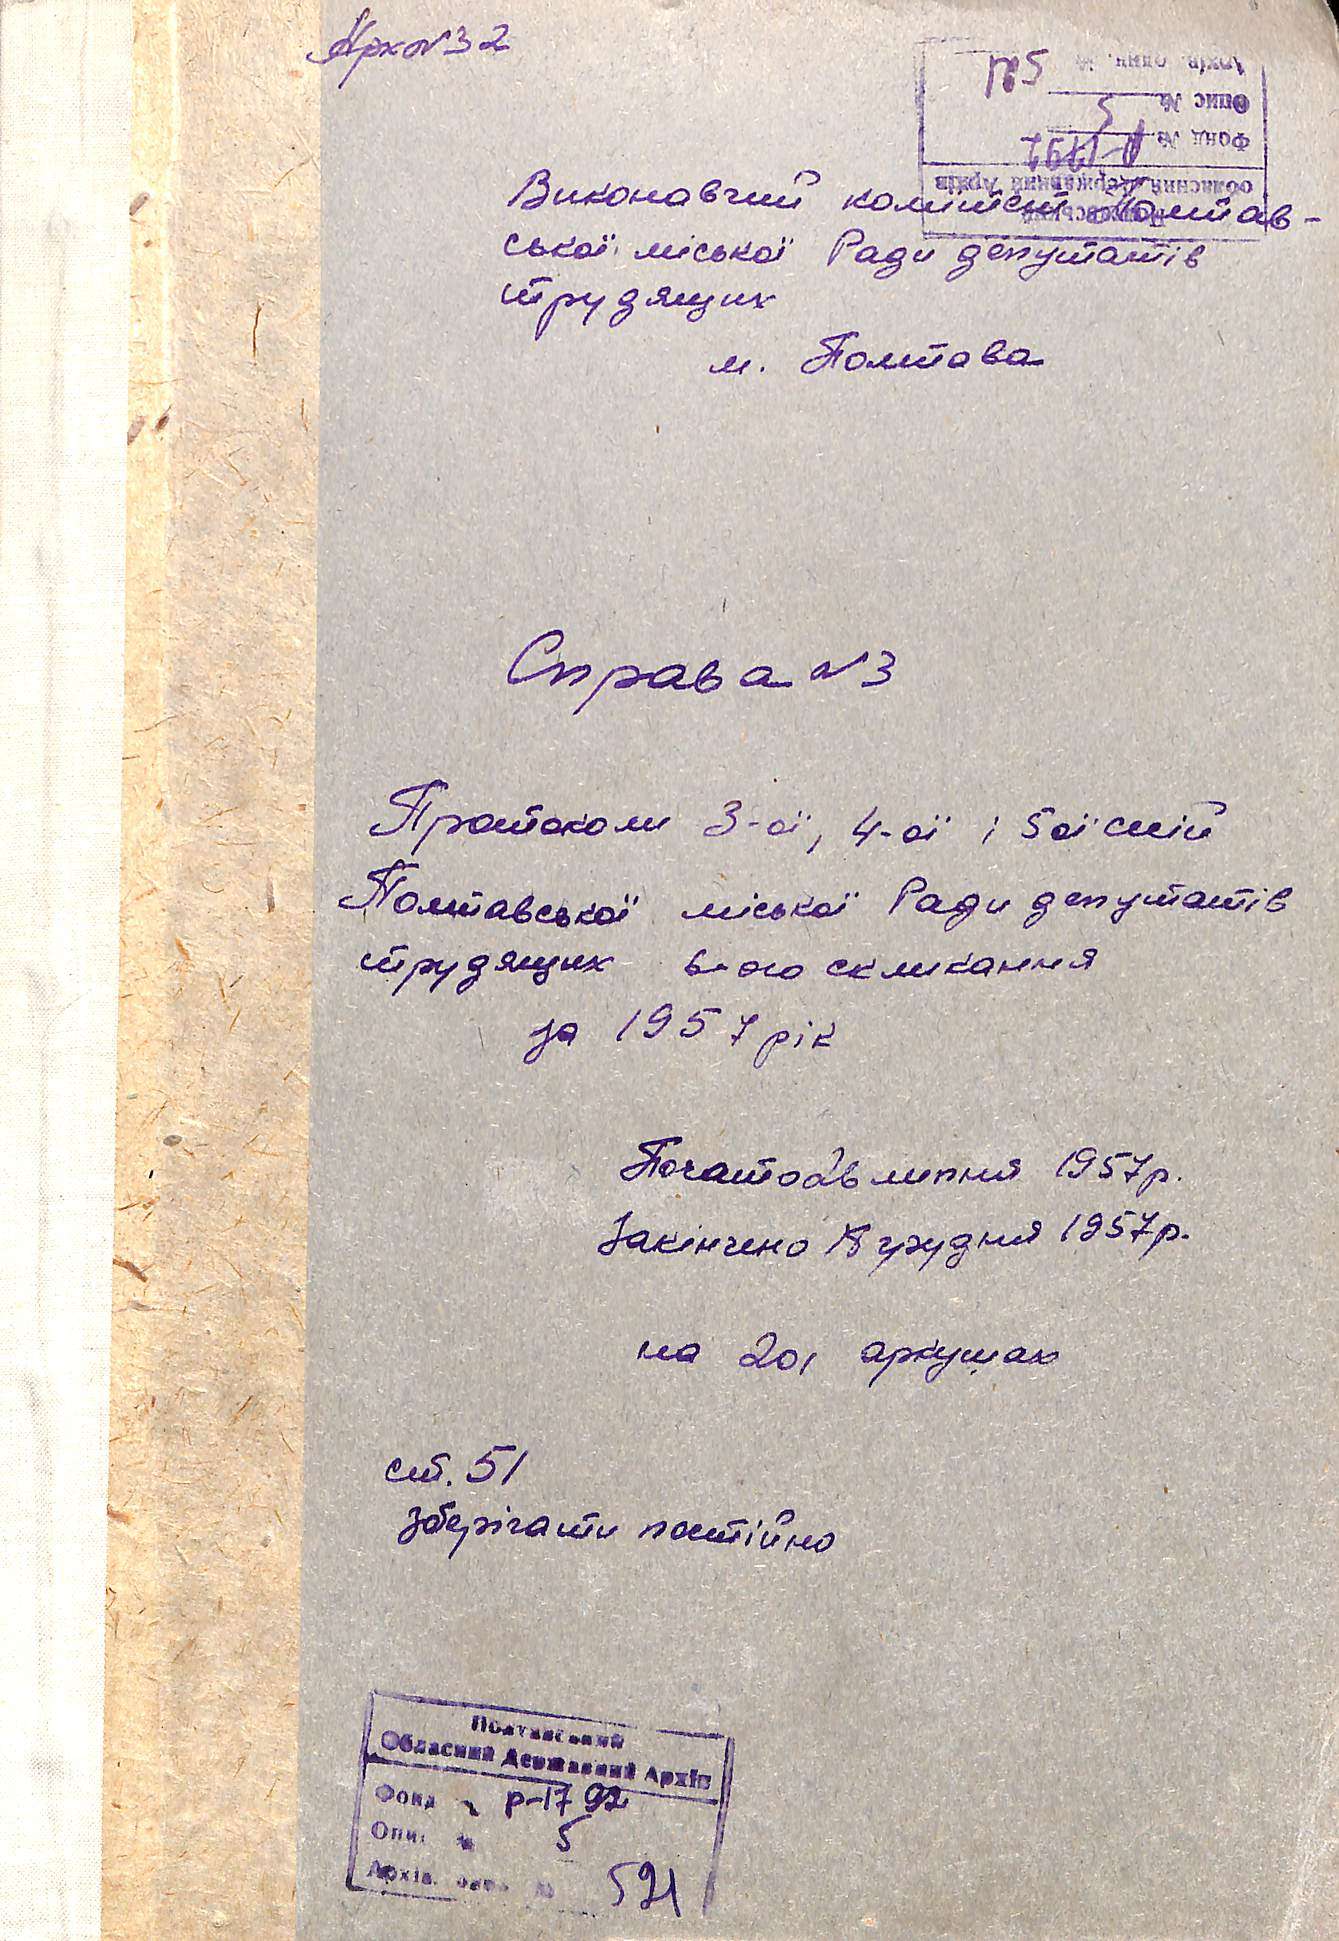 Арх №32
Архів. один. № 521
Опис № 5
Фонд №
Обласний Державний Архів
Полтавський
Виконавчий комітет Полтав-
ської міської Ради депутатів
трудящих
м. Полтава
Справа №3
Протоколи 3-ої, 4-ої і 5ої сесій
Полтавської міської Ради депутатів
трудящих 6-ого скликання
за 1957 рік
Почато 26 липня 1957р.
Закінчено 18 грудня 1957р.
на 201 аркушах
ст. 51
зберігати постійно
Полтавський
Обласний Державний Архів
Фонд № Р-1792
Опис № 5
Архів. один. № 521